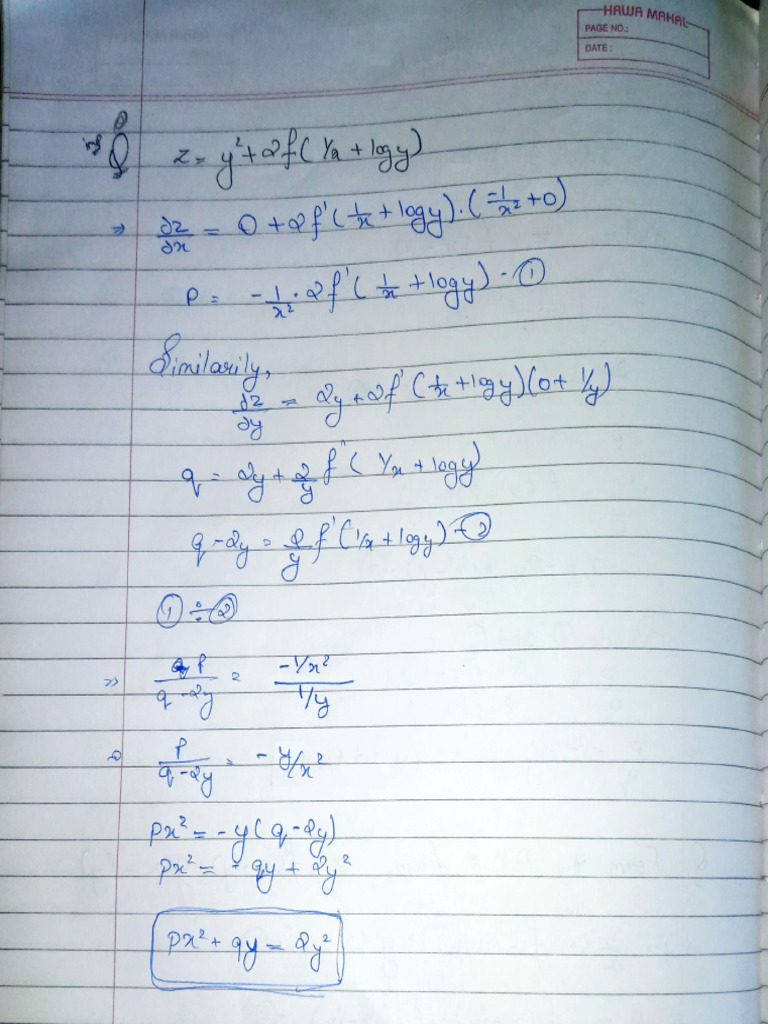 HAWA MAHAL
PAGE NO.:
DATE:
Q z = y² + 2f(1/x + logy)
⇒ ∂z/∂x = 0 + 2f'(1/x + logy).(-1/x² + 0)
P = -1/x² . 2f'(1/x + logy) - ①
Similarily,
∂z/∂y = 2y + 2f'(1/x + logy)(0 + 1/y)
q = 2y + 2/y f'(1/x + logy)
q - 2y = 2/y f'(1/x + logy) - ②
① ÷ ②
⇒ P/(q - 2y) = (-1/x²)/(1/y)
⇒ P/(q - 2y) = - y/x²
Px² = - y(q - 2y)
Px² = - qy + 2y²
Px² + qy = 2y²